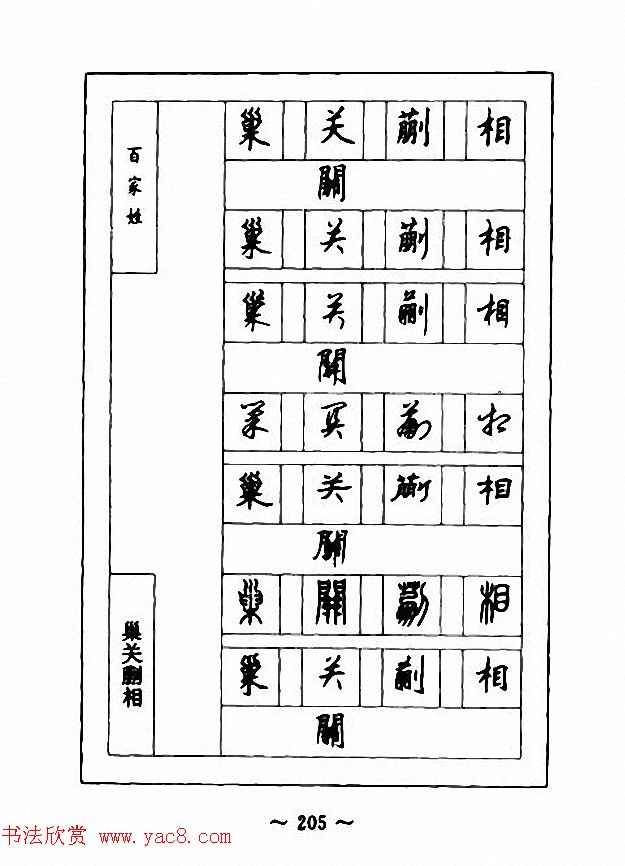 百家姓
巢 关 蒯 相
關
巢 关 蒯 相
巢 关 蒯 相
關
巢 關 蒯 相
巢 关 蒯 相
關
巢 關 蒯 相
巢 关 蒯 相
關
巢关蒯相
~ 205 ~
书法欣赏 www.yac8.com